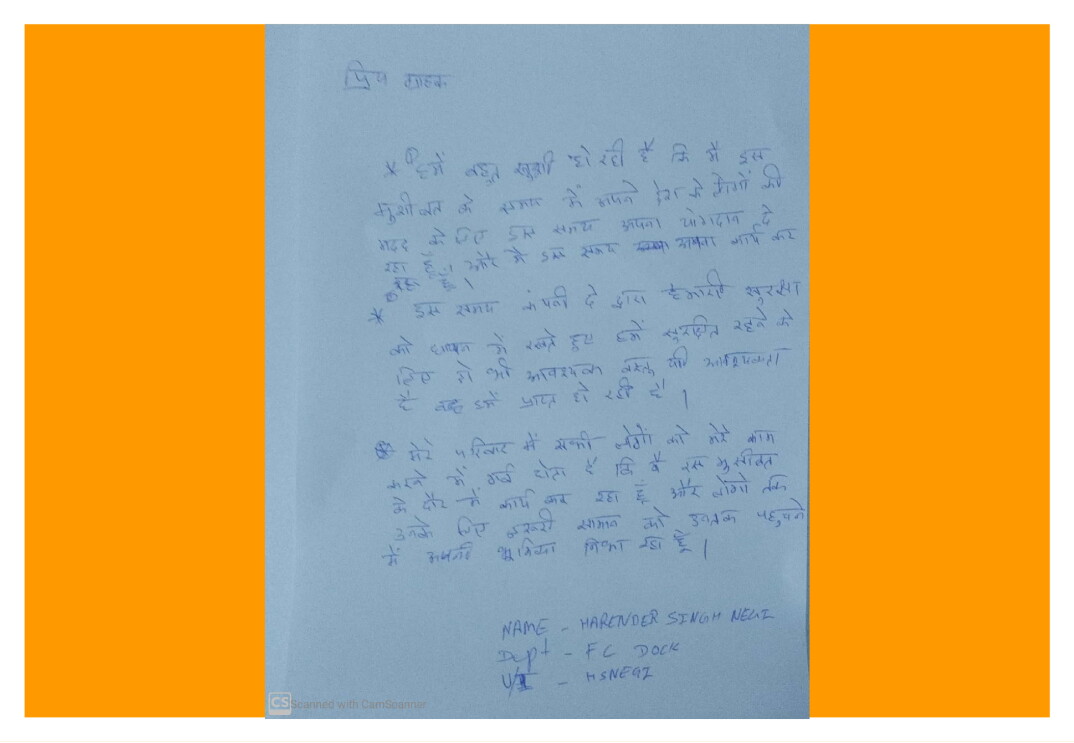 प्रिय ग्राहक
* ① हमें बहुत खुशी हो रही है कि मैं इस
मुशीबत के समय में अपने देश के लोगों की
मदद के लिए इस समय अपना योगदान दे
रहा हूँ। और मैं इस समय अपना कार्य कर
रहा हूँ।
* इस समय कंपनी दे द्वारा हमारी सुरक्षा
को ध्यान में रखते हुए हमें सुरक्षित रहने के
लिए जो भी आवश्यक वस्तु की आवश्यकता
है वह हमें प्राप्त हो रही है।
मेरे परिवार में सभी लोगों को मेरे काम
करने में गर्व होता है कि मैं इस मुसीबत
के दौर में कार्य कर रहा हूँ और लोगो तक
उनके लिए जरूरी सामान को उनतक पहुचने
में अपनी भूमिका निभा रहा हूँ।
NAME - HARENDER SINGH NEGI
Dept - FC DOCK
- HSNEGI
CS Scanned with CamScanner